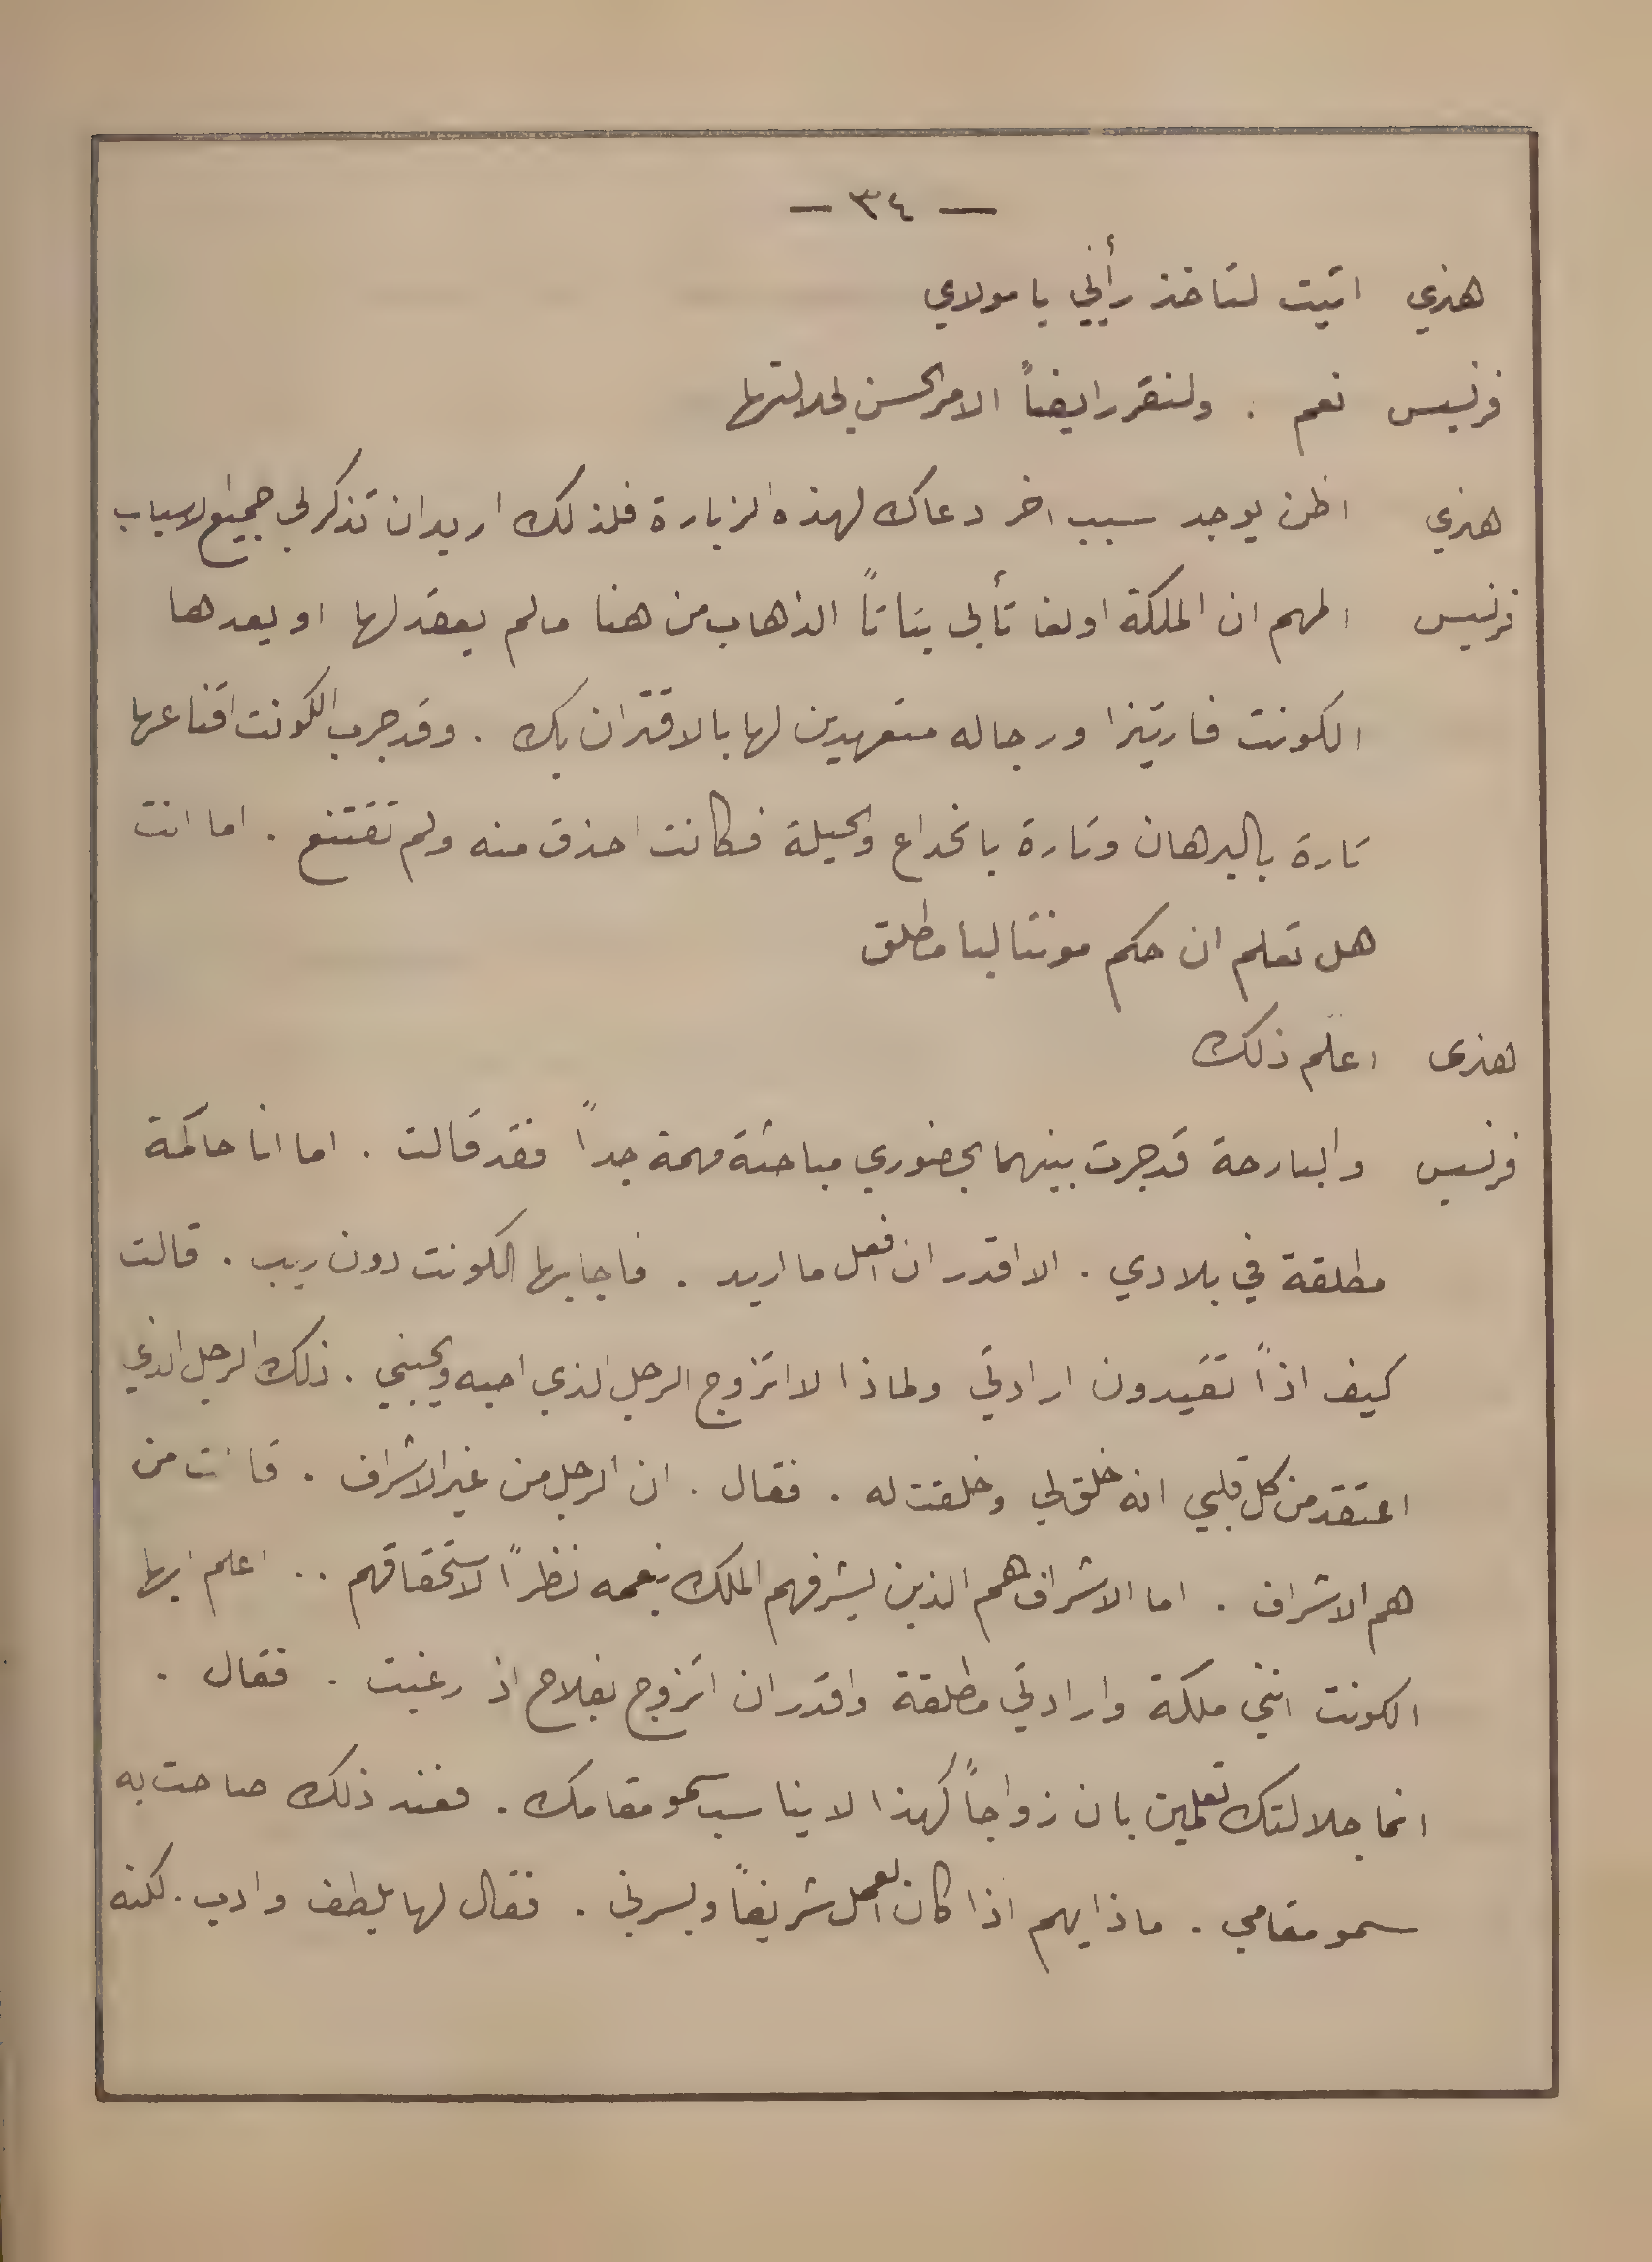 — ٣٤ —
هنري اتيت لتاخذ رأيي يا مولاي
فرنسيس نعم . ولنقرر ايضاً الامر الحسن لجلالتها
هنري اظن يوجد سبب اخر دعاك لهذه الزيارة فلذلك اريد ان تذكر لي جميع الاسباب
فرنسيس المهم ان الملكة اولغا تأبى بتاتاً الذهاب من هنا مالم يعقد لها او يعدها
الكونت فارتيزا ورجاله متعهدين لها بالاقتران بك . وقد جرب الكونت اقناعها
تارة بالبرهان وتارة بالخداع والحيلة فكانت احذق منه ولم تقتنع . اما انت
هل تعلم ان حكم مونتاليا مطلق
هنرى اعلم ذلك
فرنسيس والبارحة قد جرت بينهما بحضوري مباحثة مهمة جداً فقد قالت . اما انا حاكمة
مطلقة في بلادي . الا اقدر ان افعل ما اريد . فاجابها الكونت دون ريب . قالت
كيف اذاً تقيدون ارادتي ولماذا لا اتزوج الرجل الذي احبه ويحبني . ذلك الرجل الذي
اعتقد من كل قلبي انه خلق لي وخلقت له . فقال . ان الرجل من غير الاشراف . قالت من
هم الاشراف . اما الاشراف هم الذين يشرفهم الملك بنعمه نظراً لاستحقاقهم .. اعلم ايها
الكونت انني ملكة وارادتي مطلقة واقدر ان اتزوج بفلاح اذ رغبت . فقال .
انما جلالتك تعلمين بان زواجاً كهذا لا يناسب سمو مقامك . فعند ذلك صاحت به
سمو مقامي . ماذا يهم اذا كان العمل شريفاً ويسرني . فقال لها بلطف وادب . لكنه